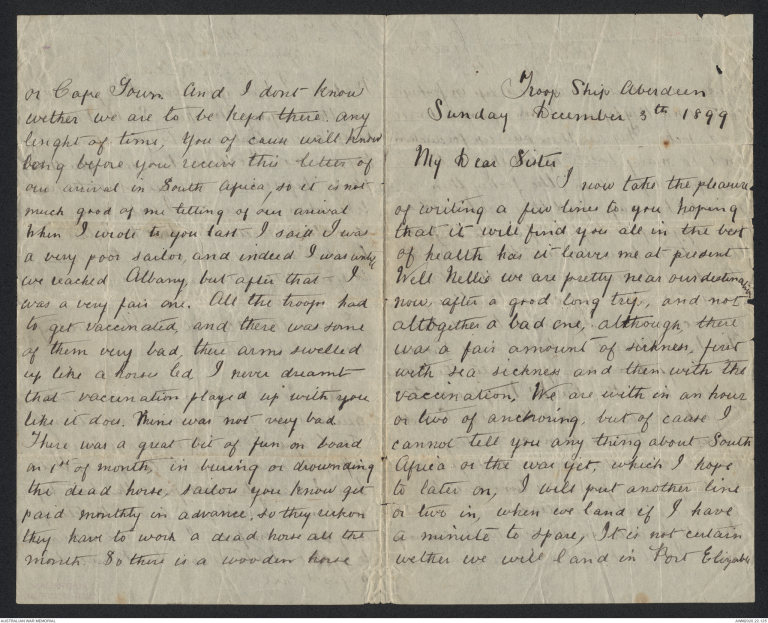 Troop Ship Aberdeen
Sunday December 3th 1899
My Dear Sister,
I now take the pleasure
of writing a few lines to you hoping
that it will find you all in the best
of health has it leaves me at present
Well Nellie we are pretty near our destination
now, after a good long trip, and not
altogether a bad one, although, there
was a fair amount of sickness, first
with sea sickness and then with the
vaccination. We are with in an hour
or two of anchoring, but of cause I
cannot tell you any thing about South
Africa or the war yet, which I hope
to later on, I will put another line
or two in, when we land if I have
a minute to spare, It is not certain
wether we will land in Port Elizabeth
or Cape Town And I dont know
wether we are to be kept there any
lenght of time, You of cause will know
long before you receive this letter of
our arrival in South Africa, so it is not
much good of me telling of our arrival
When I wrote to you last I said I was
a very poor sailor, and indeed I was until
we reached Albany, but after that I
was a very fair one. All the troops had
to get vaccinated, and there was some
of them very bad, there arms swelled
up like a horses led I never dreamt
that vaccination played up with you
like it does. Mine was not very bad
There was a great bit of fun on board
on 1st of month, in buring or drownding
the dead horse, sailors you know get
paid monthly in advance, so they reckon
they have to work a dead horse all the
month So there is a wooden horse
AUSTRALIAN WAR MEMORIAL
AWM2020.22.125